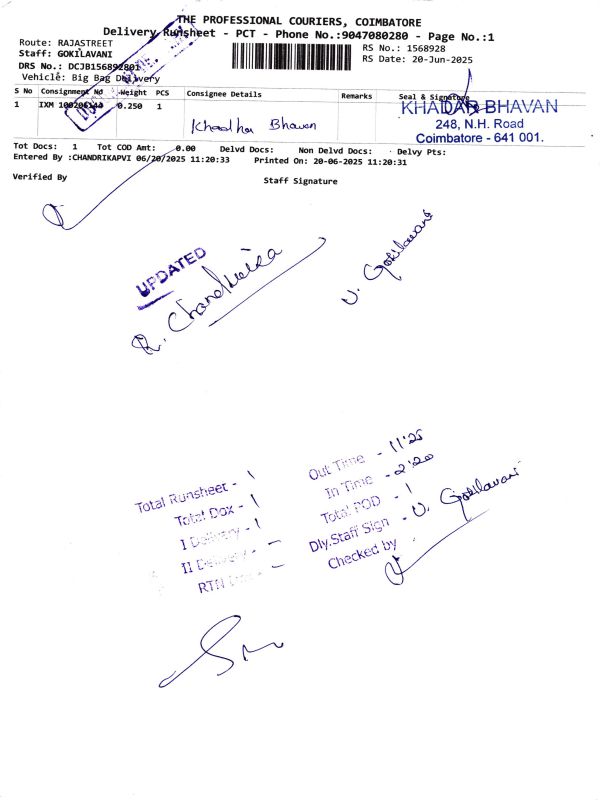 THE PROFESSIONAL COURIERS, COIMBATORE
Delivery Runsheet - PCT - Phone No.:9047080280 - Page No.:1
Route: RAJASTREET
RS No.: 1568928
Staff: GOKILAVANI
RS Date: 20-Jun-2025
DRS No.: DCJB156892801
Vehicle: Big Bag Delivery
S No Consignment No Weight PCS Consignee Details Remarks Seal & Signature
1 IXM 0.250 1
Khaadhar Bhavan
KHADAR BHAVAN
248, N.H. Road
Coimbatore - 641 001.
Tot Docs: 1 Tot COD Amt: 0.00 Delvd Docs: Non Delvd Docs: Delvy Pts:
Entered By :CHANDRIKAPVI 06/20/2025 11:20:33 Printed On: 20-06-2025 11:20:31
Verified By
Staff Signature
UPDATED
R. Chandrika
V. Gokilavani
Total Runsheet - 1
Total Dox - 1
I Delivery - 1
II Delivery - -
RTN -
Out Time - 11'25
In Time - 2'20
Total POD - 1
Dly.Staff Sign - V. Gokilavani
Checked by